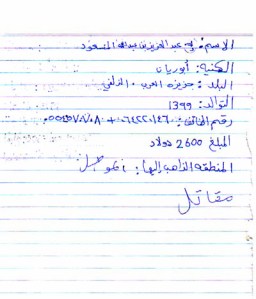 الاسم: عبد العزيز بن عبدالله المسعود
الكنية: أبوريان
البلد: جزيرة العرب . الزلفي
التوالد: 1399
رقم الهاتف:
المبلغ 2600 دولار
المنطقة الذاهب إليها: الموصل
مقاتل